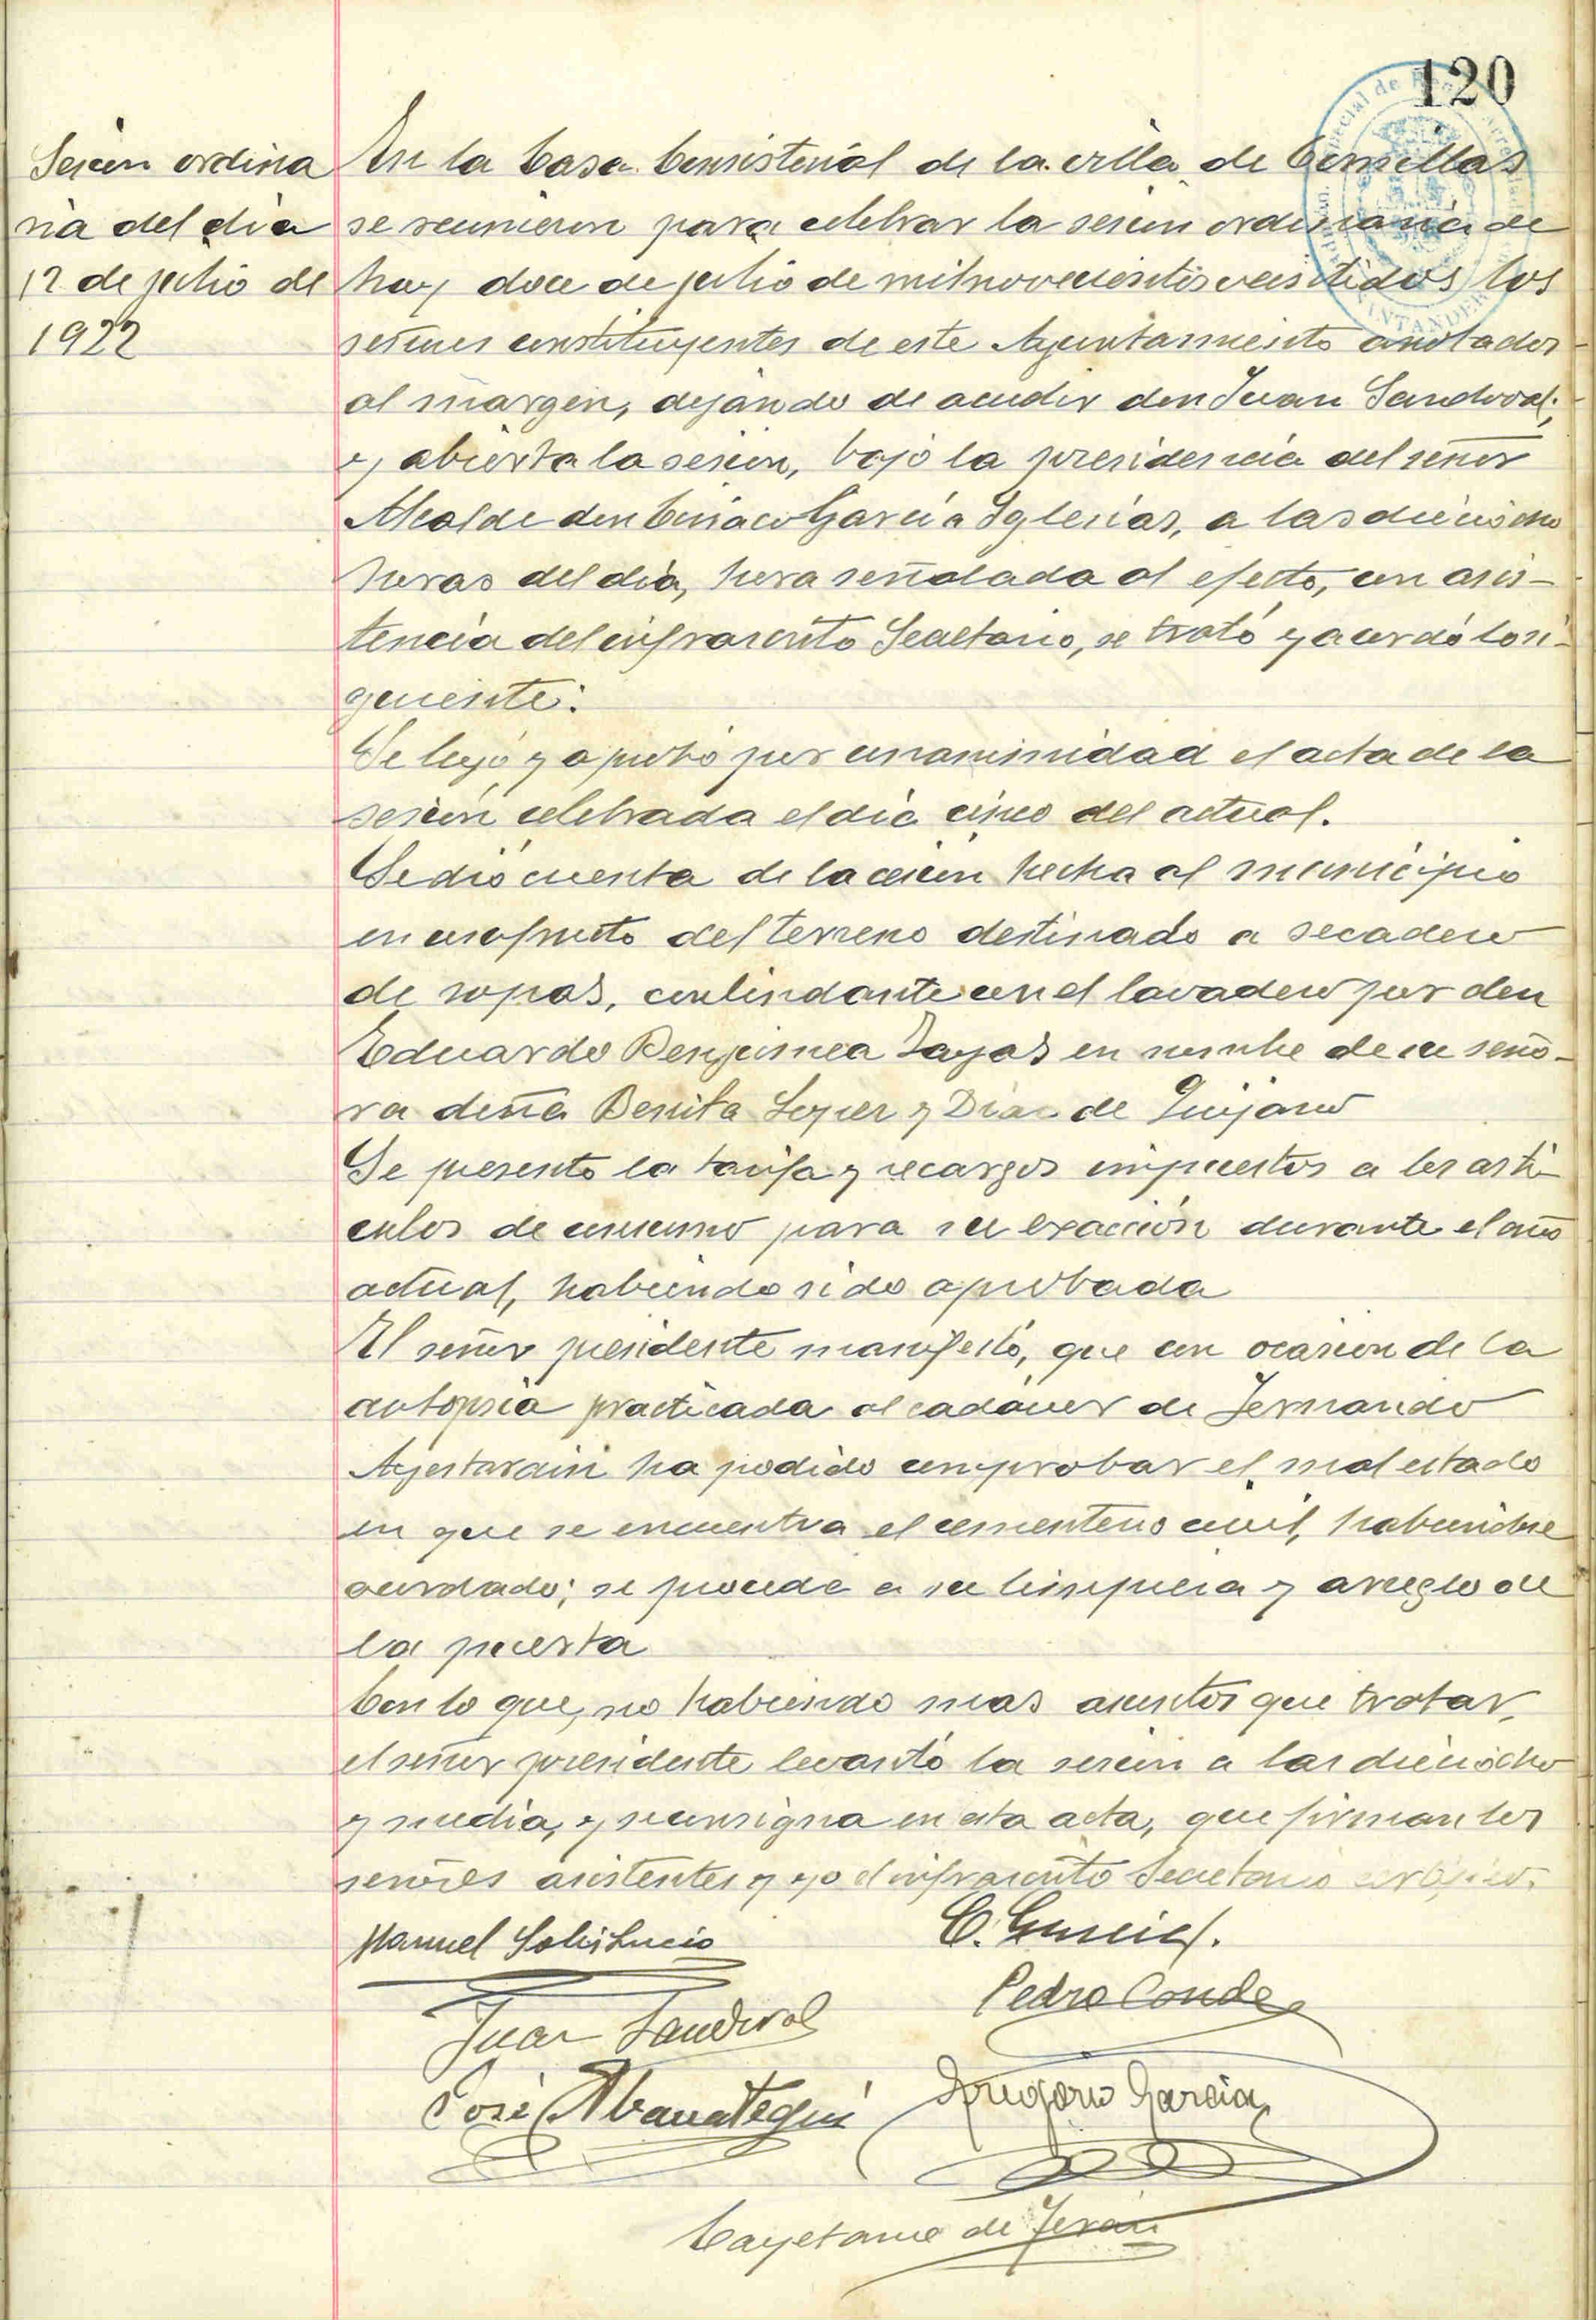 120
Sesion ordina
ria del dia
12 de julio de
1922
En la Casa Consistorial de la villa de Comillas
se reunieron para celebrar la sesion ordinaria de
hoy doce de julio de mil novecientos veintidos los
señores constituyentes de este Ayuntamiento anotados
al margen, dejando de acudir don Juan Sandoval;
y abierta la sesion, bajo la presidencia del señor
Alcalde don Ciriaco García Iglesias, a las dieciocho
horas del dia, hora señalada al efecto, con asis-
tencia del infrascrito Secretario, se trató y acordó lo si-
guiente:
Se leyó y aprobó por unanimidad el acta de la
sesion celebrada el dia cinco del actual.
Se dió cuenta de la cesion hecha al municipio
en usufructo del terreno destinado a secadero
de ropas, colindante con el lavadero por don
Eduardo Benjumea Zayas en nombre de su seño-
ra doña Benita Lopez y Diaz de Quijano
Se presento la tarifa y recargos impuestos a los arti
culos de consumo para su exacción durante el año
actual, habiendo sido aprobada
El señor presidente manifestó, que con ocasion de la
autopsia practicada al cadáver de Fernando
Ayestarain ha podido comprobar el mal estado
en que se encuentra el cementerio civil, habiendose
acordado; se proceda a su limpieza y arreglo de
la puerta
Con lo que, no habiendo mas asuntos que tratar,
el señor presidente levantó la sesion a las dieciocho
y media, y se consigna en esta acta, que firman los
señores asistentes y yo el infrascrito Secretario certifico.
Manuel Solis Lucio
C. Garcia.
Pedro Conde
Juan Sandoval
José Abanategui
Gregorio Garcia
Cayetano de Teran